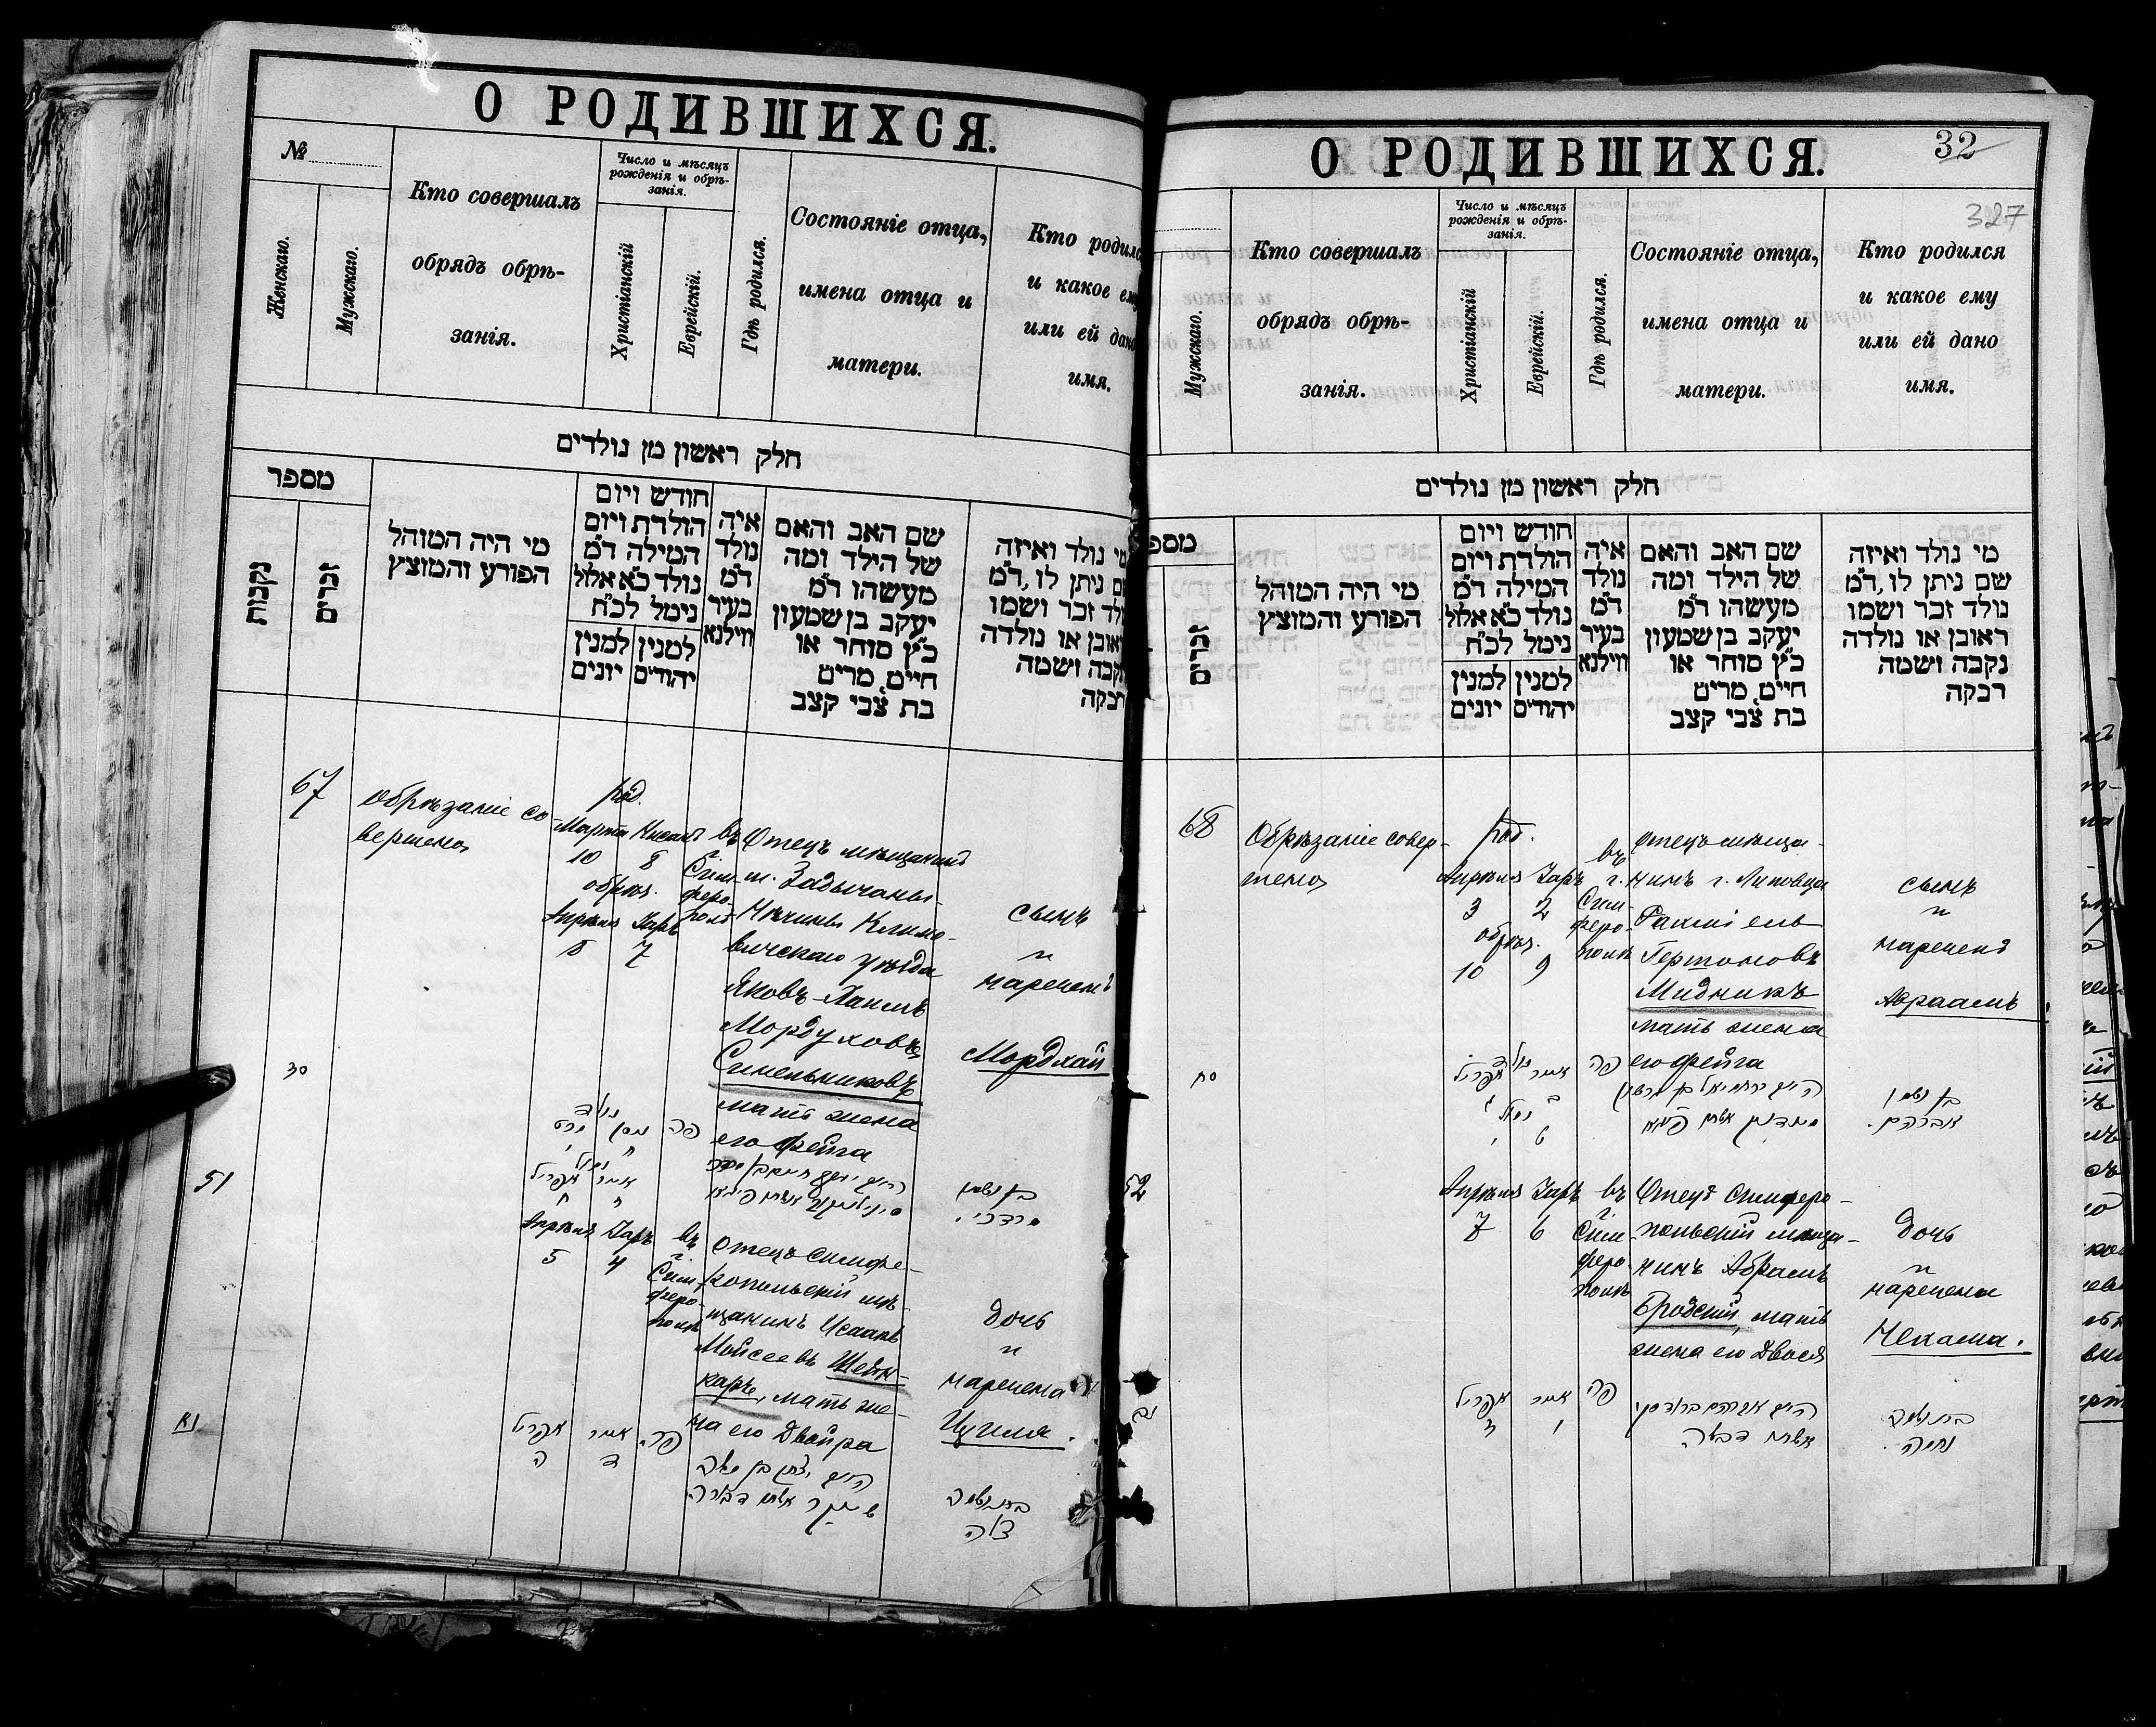 О РОДИВШИХСЯ.
№
Женскаго.
Мужскаго.
Кто совершалъ
обрядъ обрѣ-
занія.
Число и мѣсяцъ
рожденія и обрѣ-
занія.
Христіанскій
Еврейскій.
Гдѣ родился.
Состояніе отца,
имена отца и
матери.
Кто родилс
и какое ем
или ей дано
имя.
חלק ראשון מן נולדים
מספר
נקבות
זכרים
מי היה המוהל
הפורע והמוצץ
חודש ויום
הולדת ויום
המילה ד"מ
נולד כ"א אלול
נימל לכ"ח
למנין יהודים
למנין יונים
איה
נולד
ד"מ
בעיר
ווילנא
שם האב והאם
של הילד ומה
מעשהו ד"מ
יעקב בן שמעון
כ"ץ סוחר או
חייט, מרים
בת צבי קצב
מי נולד ואיזה
שם ניתן לו, ד"מ
נולד זכר ושמו
ראובן או נולדה
נקבה ושמה
רבקה
67
Обрѣзаніе со-
вершено
род.
Марта Нисанъ
10 8
обрѣз.
Апрѣля Іаръ
8 7
въ
г.
Сим-
феро-
полѣ
Отецъ мѣщанинъ
м. Задычаны-
Нѣчины Климо-
вичскаго уѣзда
Яковъ-Хаимъ
Мордуховъ
Синельниковъ
мать жена
его Фейга
сынъ
и
нареченъ
Мордхай
30
נולד
פה
ניסן
ח
נימול
אפריל
אייר
ח
בן ושמו
מרדכי.
51
Апрѣля Іаръ
5 4
въ
г.
Сим-
феро-
полѣ
Отецъ симфе-
ропольскій мѣ-
щанинъ Исаакъ
Мойсеевъ Шейн-
каръ, мать же-
на его Двойра
дочь
и
наречена
Цизля.
אפריל
אייר
פה
ה
ד
בת ושמה
О РОДИВШИХСЯ.
32
327
Мужскаго.
Кто совершалъ
обрядъ обрѣ-
занія.
Число и мѣсяцъ
рожденія и обрѣ-
занія.
Христіанскій
Еврейскій.
Гдѣ родился.
Состояніе отца,
имена отца и
матери.
Кто родился
и какое ему
или ей дано
имя.
חלק ראשון מן נולדים
מספ
זכרים
מי היה המוהל
הפורע והמוצץ
חודש ויום
הולדת ויום
המילה ד"מ
נולד כ"א אלול
נימל לכ"ח
למנין יהודים
למנין יונים
איה
נולד
ד"מ
בעיר
ווילנא
שם האב והאם
של הילד ומה
מעשהו ד"מ
יעקב בן שמעון
כ"ץ סוחר או
חייט, מרים
בת צבי קצב
מי נולד ואיזה
שם ניתן לו, ד"מ
נולד זכר ושמו
ראובן או נולדה
נקבה ושמה
רבקה
68
Обрѣзаніе совер-
шено
род.
Апрѣля Іаръ
3 2
обрѣз.
10 9
въ
г.
Сим-
феро-
полѣ
Отецъ мѣща-
нинъ г. Липовца
Рахміель
Гершоновъ
Мидникъ
мать жена
его Фейга
сынъ
и
нареченъ
Авраамъ
נולד
אפריל
אייר
פה
בן ושמו
אברהם.
52
Апрѣля Іаръ
7 6
въ
г.
Сим-
феро-
полѣ
Отецъ симферо-
польскій мѣща-
нинъ Абрамъ
Бродскій, мать
жена его Двося
дочь
и
наречена
Нехама.
נב
אפריל
אייר
פה
ז
ו
בת ושמה